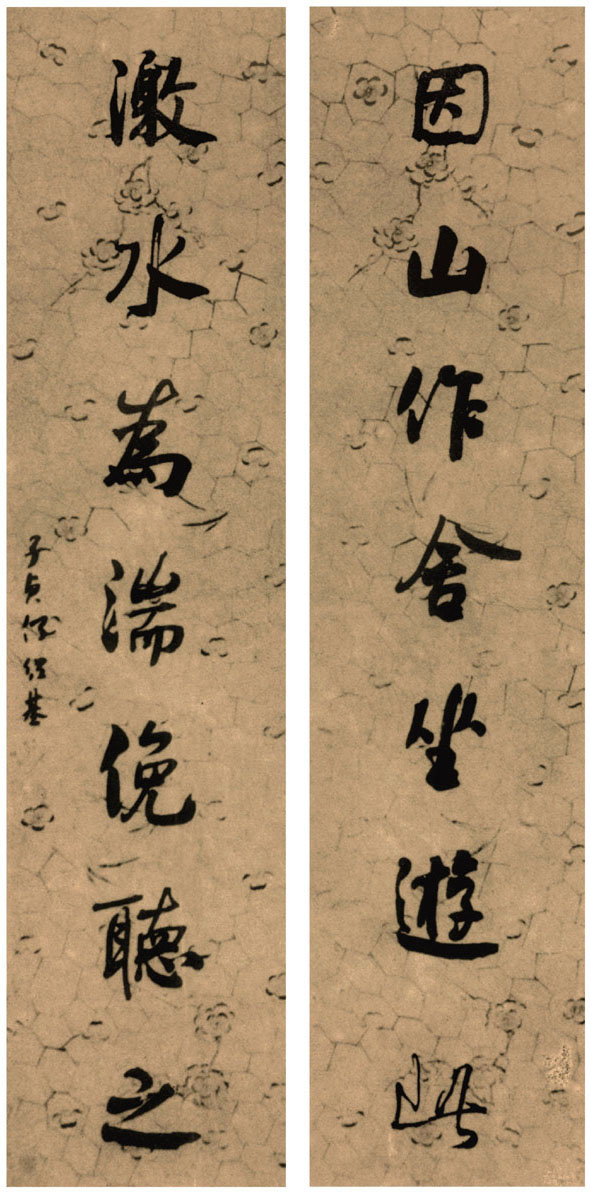 因山作舍坐遊此
激水為湍俛聽之
子貞何紹基